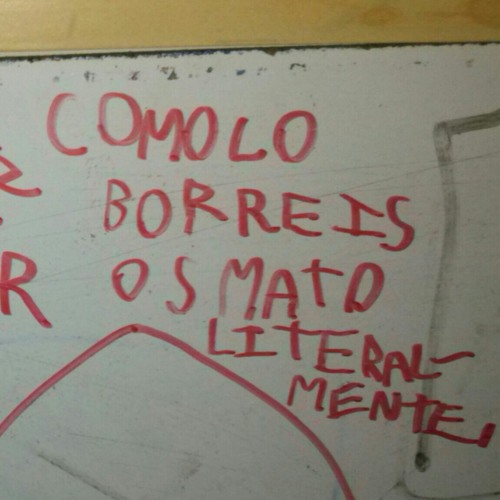 COMOLO
BORREIS
R OS MATO
LITERAL-
MENTE.